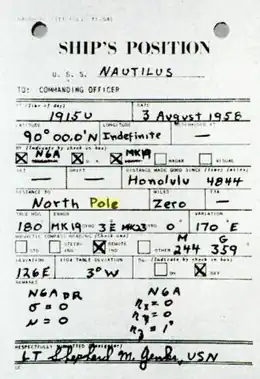 SHIP'S POSITION
U. S. S. NAUTILUS
TO: COMMANDING OFFICER
AT (Time of day) DATE
1915U 3 August 1958
LATITUDE LONGITUDE
90° 00.0'N Indefinite —
BY (Indicate by check in box)
N6A MK19 RADAR VISUAL
SET DRIFT DISTANCE MADE GOOD SINCE (time) (miles)
— — Honolulu 4844
DISTANCE TO MILES ETA
North Pole Zero —
TRUE HDG. ERROR VARIATION
180 MK19 3E MK23 0 170°E
MAGNETIC COMPASS HEADING (Check one)
STD STEERING REMOTE IND OTHER M 244 G 359
DEVIATION TABLE DEVIATION (Indicate by check in box)
126E 3°W ON OFF
REMARKS
N6A DR N6A
σ = 0 Rx = 0
N = 0 Ry = 0
Rz = 1°
RESPECTFULLY SUBMITTED
LT Shepherd M. Jenks, USN